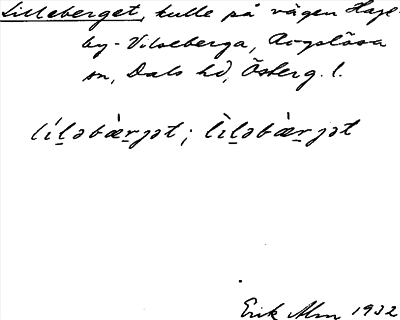 Lilleberget, kulle på vägen Hage-
by - Vilseberga, Rogslösa
sn, Dals hd, Österg. l.
li´l̠əbæ̀r̠jət ; lìl̠əbæ̀r̠jət
Erik Alm 1932